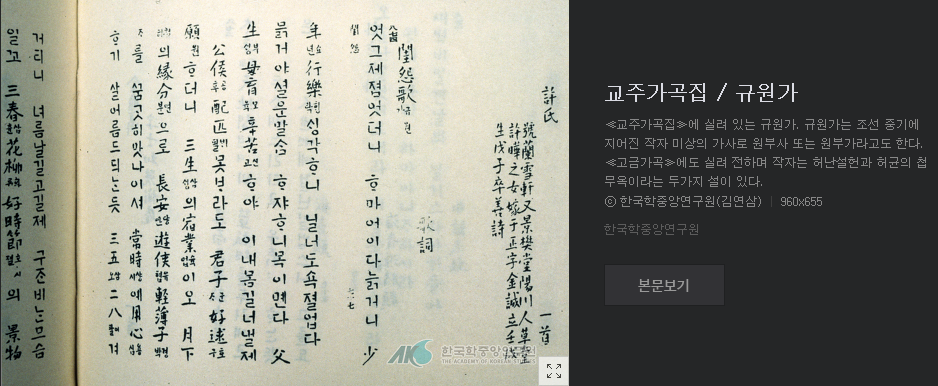 許氏
號蘭雪軒又景樊堂陽川人草堂
許曄之女嫁于正字金誠立壬戌
生戊子卒善詩
一首
歌詞
閨怨歌
엇그제졈엇더니 ᄒᆞ마어이다늙거니 少
年行樂 싱각ᄒᆞ니 닐너도쇽졀업다
늙거야설운말ᄉᆞᆷ ᄒᆞ쟈ᄒᆞ니목이멘다 父
生母育辛苦ᄒᆞ야 이내몸길너낼제
公侯配匹못ᄇᆞ라도 君子好逑
願ᄒᆞ더니 三生의宿業이오 月下
의緣分으로 長安遊俠輕薄子
를 ᄭᅮᆷᄀᆞᆺ히맛나이셔 當時예用心
ᄒᆞ기 살어름드듸ᄂᆞᆫ듯 三五二八
거티니 녀름날길고길제 구즌비ᄂᆞᆫ므슴
일고 三春花柳好時節의 景物
한국학중앙연구원
THE ACADEMY OF KOREAN STUDIES
교주가곡집 / 규원가
≪교주가곡집≫에 실려 있는 규원가. 규원가는 조선 중기에
지어진 작자 미상의 가사로 원부사 또는 원부가라고도 한다.
≪고금가곡≫에도 실려 전하며 작자는 허난설헌과 허균의 첩
무옥이라는 두가지 설이 있다.
ⓒ 한국학중앙연구원(김연삼) | 960x655
한국학중앙연구원
본문보기